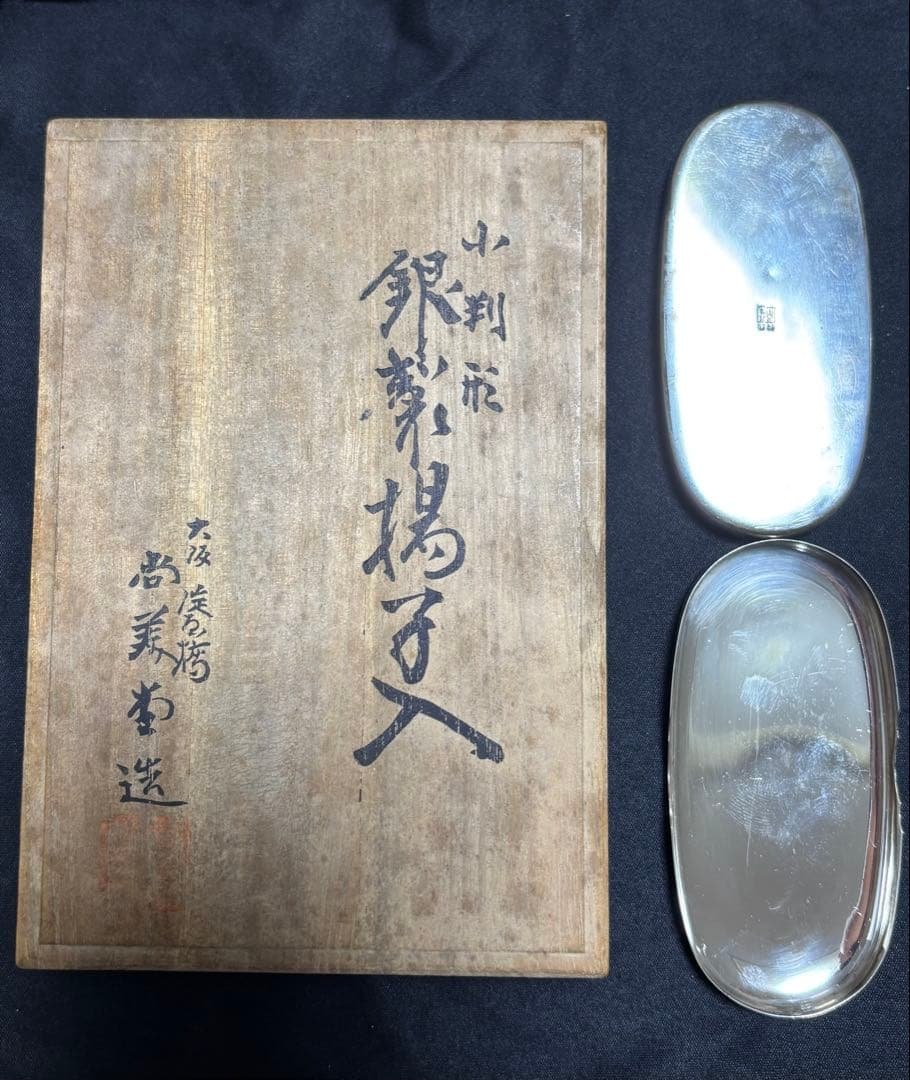 小判形
銀製楊子入
大阪淀屋橋
尚美堂造